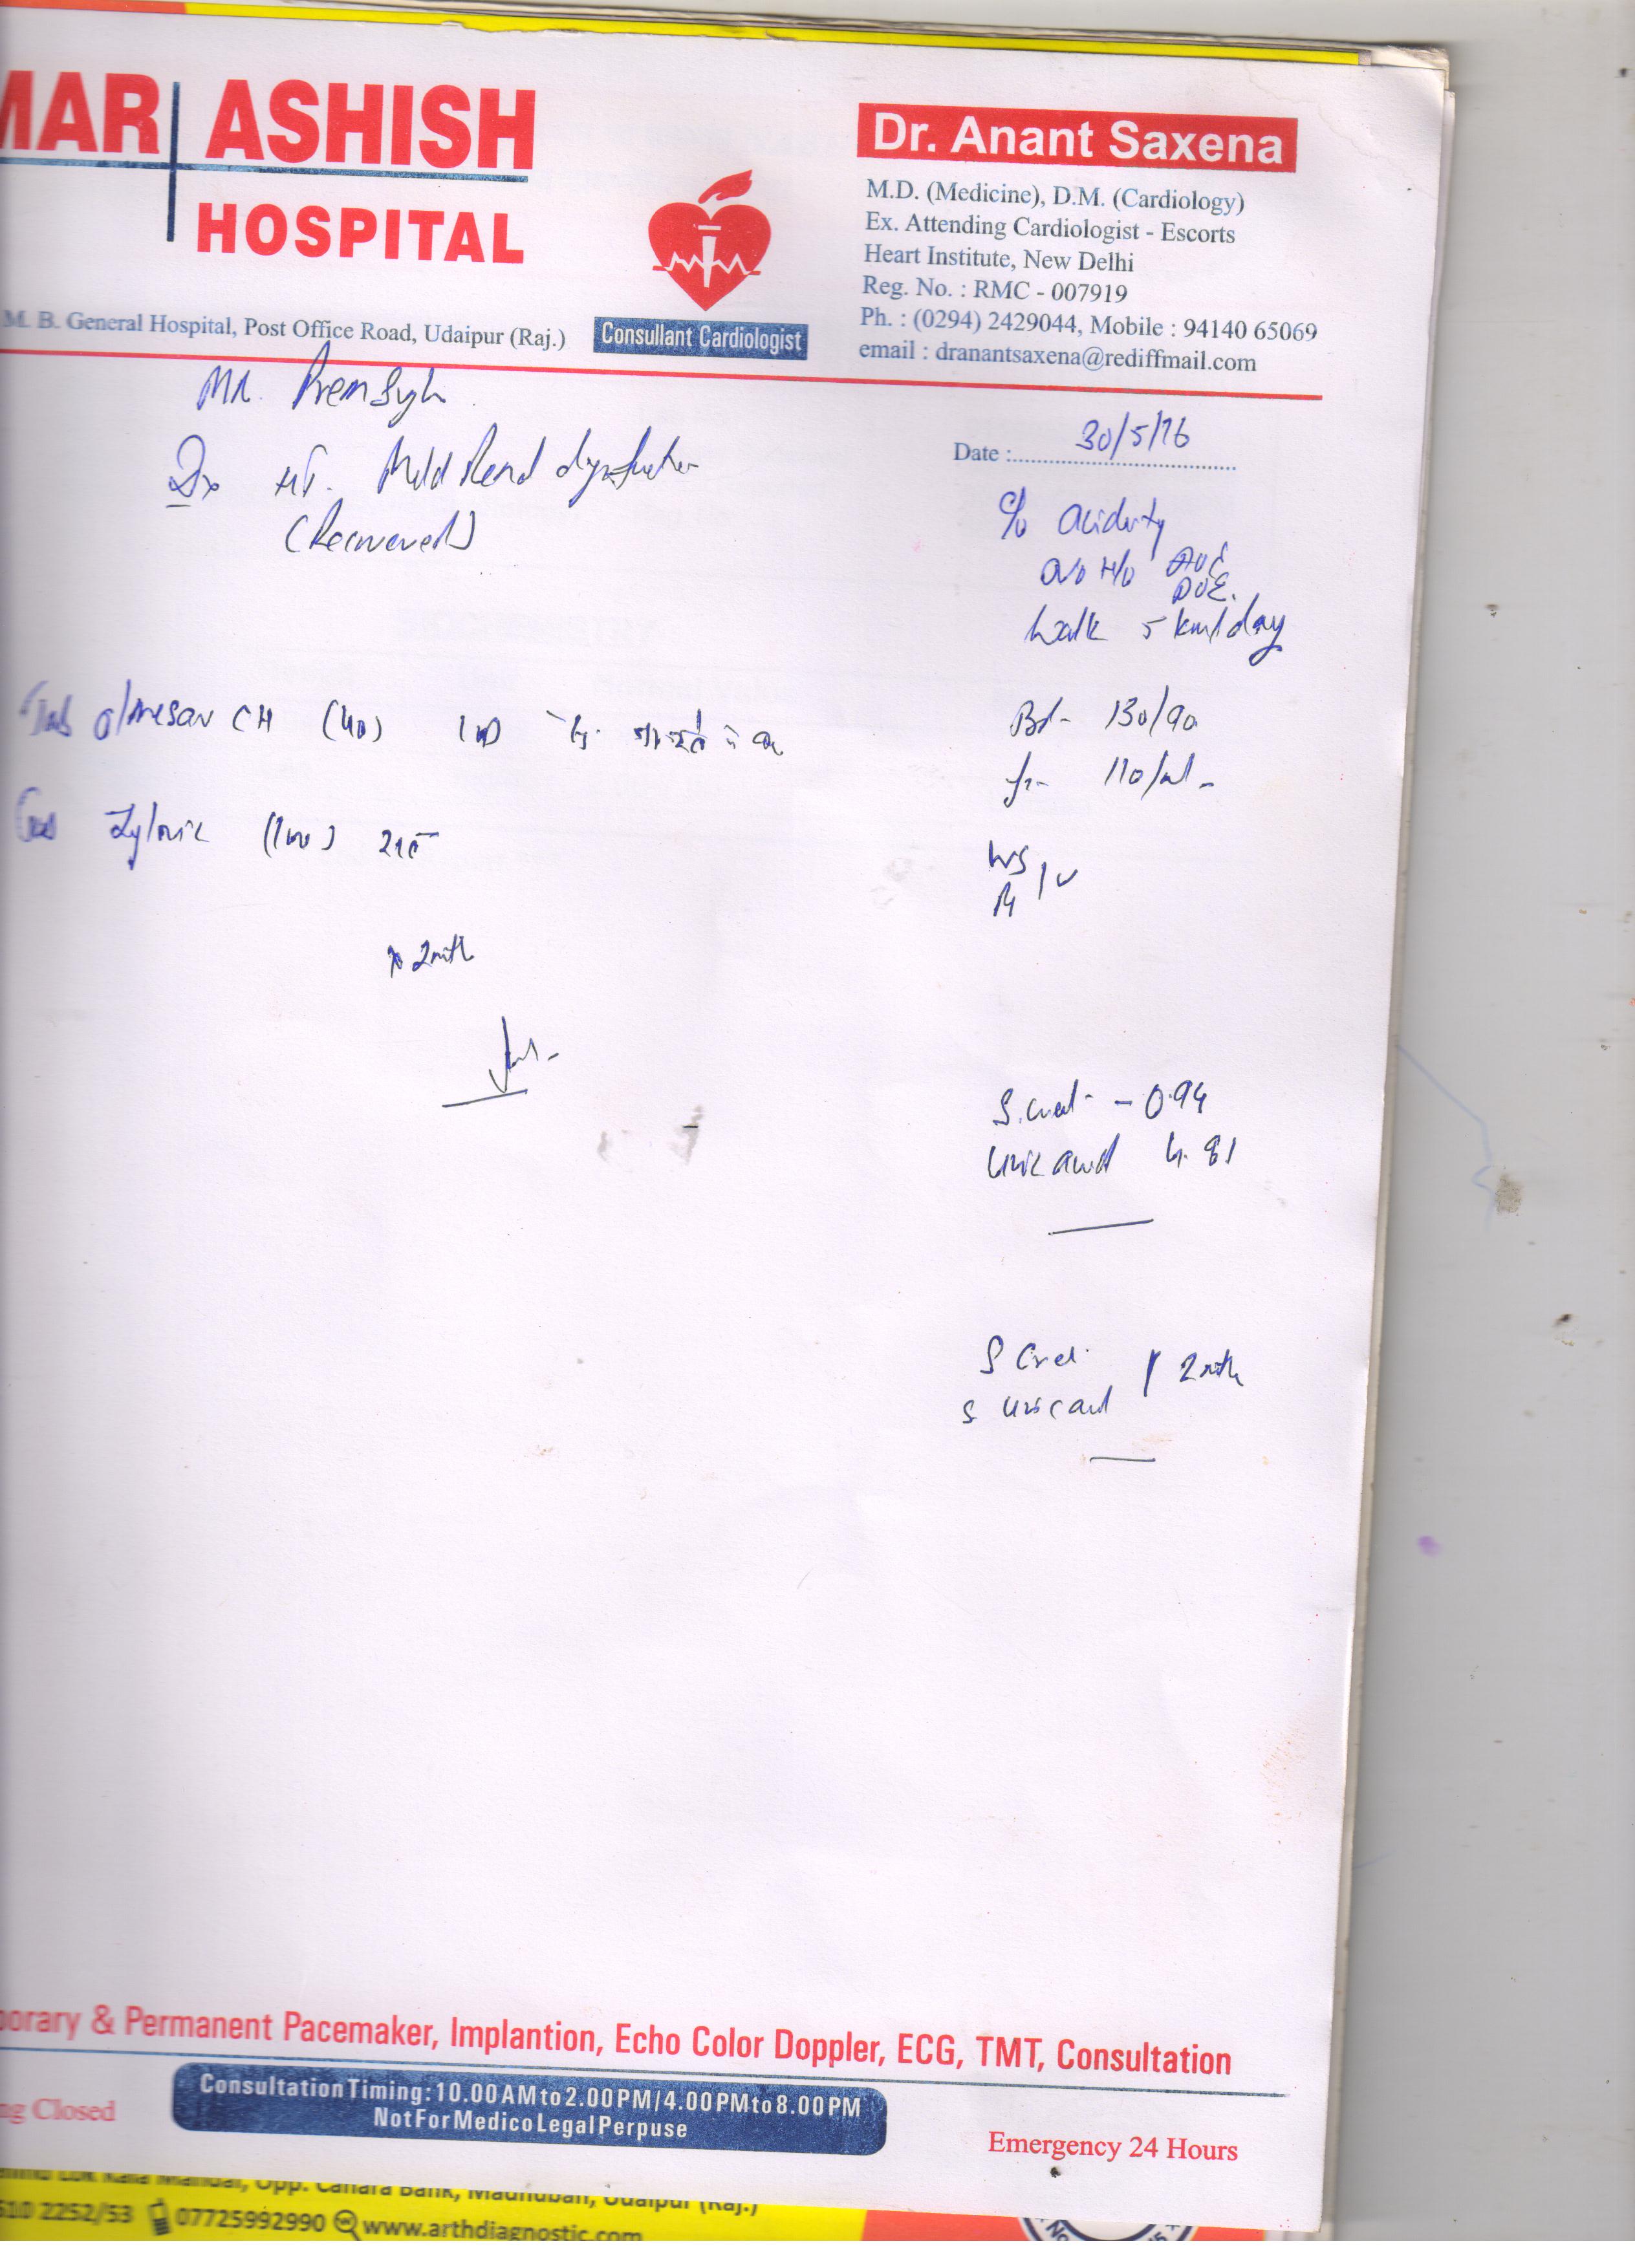 MAR ASHISH
HOSPITAL
M. B. General Hospital, Post Office Road, Udaipur (Raj.)
Consullant Cardiologist
Dr. Anant Saxena
M.D. (Medicine), D.M. (Cardiology)
Ex. Attending Cardiologist - Escorts
Heart Institute, New Delhi
Reg. No. : RMC - 007919
Ph. : (0294) 2429044, Mobile : 94140 65069
email : dranantsaxena@rediffmail.com
Mr.
Date :
30/5/16
Dx HT. Mild Renal dysfunction
(Recovered)
c/o acidity
no H/o AOE
DOE.
Walk 5 km/day
Tab Olmesar CH (40) 1 OD
Tab Zyloric (100)
x 2 mth
130/90
110/
S. Creat - 0.94
Uric acid 4.81
S Creat
S Uric acid 2 mth
porary & Permanent Pacemaker, Implantion, Echo Color Doppler, ECG, TMT, Consultation
ng Closed
Consultation Timing : 10.00 AM to 2.00 PM / 4.00 PM to 8.00 PM
Not For Medico Legal Perpuse
Emergency 24 Hours
Lok Kala Mandal, Opp. Canara Bank, Madhuban, Udaipur (Raj.)
510 2252/53 07725992990 www.arthdiagnostic.com